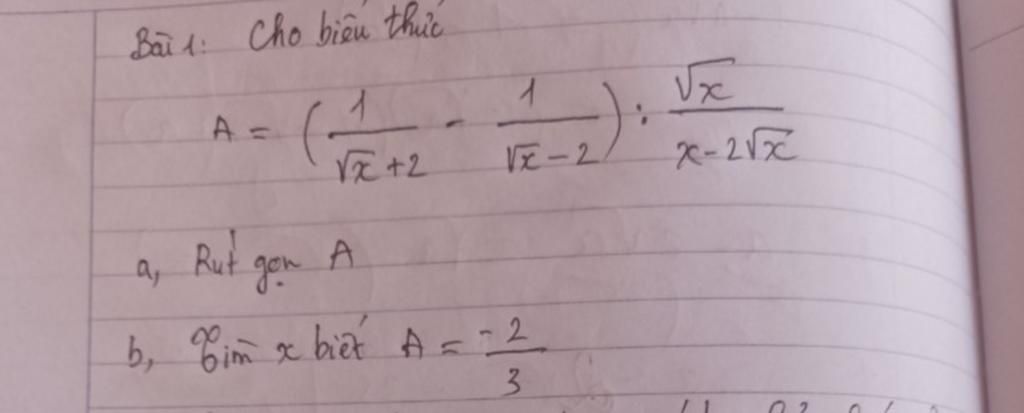 Bài 1: Cho biểu thức
A = (1/(√x + 2) - 1/(√x - 2)) : √x/(x - 2√x)
a, Rút gọn A
b, Tìm x biết A = -2/3